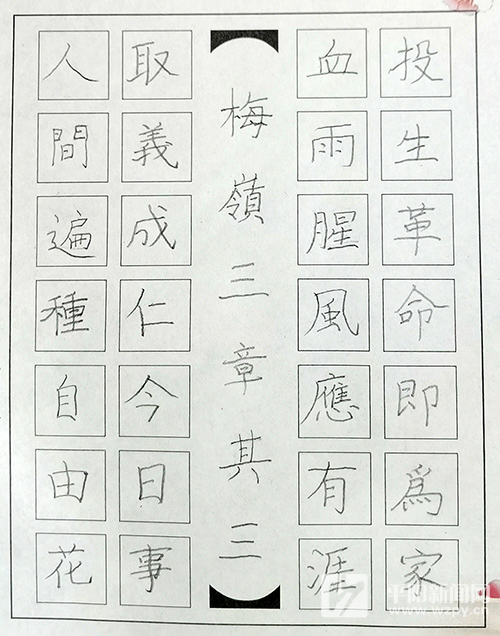 投生革命即爲家
血雨腥風應有涯
梅嶺三章其三
取義成仁今日事
人間遍種自由花
www.wzpy.cn